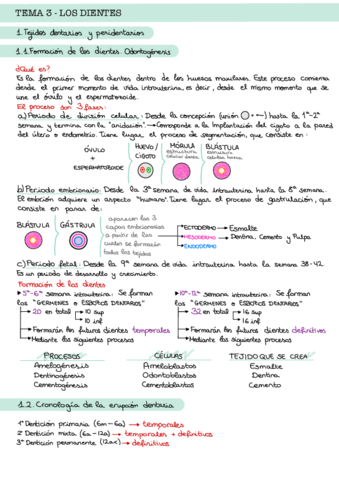 TEMA 3 - LOS DIENTES
1. Tejidos dentarios y peridentarios
1.1. Formación de los dientes. Odontogénesis
¿Qué es?
Es la formación de los dientes dentro de los huesos maxilares. Este proceso comienza
desde el primer momento de vida intrauterina, es decir, desde el mismo momento que se
une el óvulo y el espermatozoide.
El proceso son 3 fases:
a) Periodo de división celular: Desde la concepción (unión) hasta la 1ª-2ª
semana y termina con la "anidación". → Corresponde a la implantación del cigoto a la pared
del útero o endometrio. Tiene lugar, el proceso de segmentación, que consiste en:
ÓVULO + ESPERMATOZOIDE
HUEVO/ CIGOTO
MÓRULA estructura celular densa
BLÁSTULA estructura celular hueca
b) Periodo embrionario: Desde la 3ª Semana de vida intrauterina hasta la 8ª semana.
El embrión adquiere un aspecto "humano". Tiene lugar el proceso de gastrulación, que
consiste en pasar de:
BLÁSTULA
GÁSTRULA
aparecen las 3
capas embrionarias
a partir de las
cuales se formarán
todos los tejidos
ECTODERMO → Esmalte
MESODERMO → Dentina, Cemento y Pulpa
ENDODERMO
c) Periodo fetal: Desde la 9ª semana de vida intrauterina hasta la semana 38-42.
Es un periodo de desarrollo y crecimiento.
Formación de los dientes
5ª-6ª semana intrauterina: Se forman
los "GÉRMENES o ESBOZOS DENTARIOS"
→ 20 en total → 10 sup
→ 10 inf
→ Formarán los futuros dientes temporales
→ Mediante los siguientes procesos
10ª-12ª semana intrauterina: Se forman
los "GÉRMENES o ESBOZOS DENTARIOS"
→ 32 en total → 16 sup
→ 16 inf
→ Formarán los futuros dientes definitivos
→ Mediante los siguientes procesos
PROCESOS
Amelogénesis
Dentinogénesis
Cementogénesis
CÉLULAS
Ameloblastos
Odontoblastos
Cementoblastos
TEJIDO QUE SE CREA
Esmalte
Dentina
Cemento
1.2. Cronología de la erupción dentaria
1ª Dentición primaria (6m-6a) → temporales
2ª Dentición mixta (6a-12a) → temporales + definitivos
3ª Dentición permanente (12a<) → definitivos